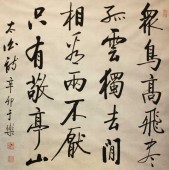 眾鳥高飛盡
孤雲獨去閒
相看兩不厭
只有敬亭山
太白詩 辛卯